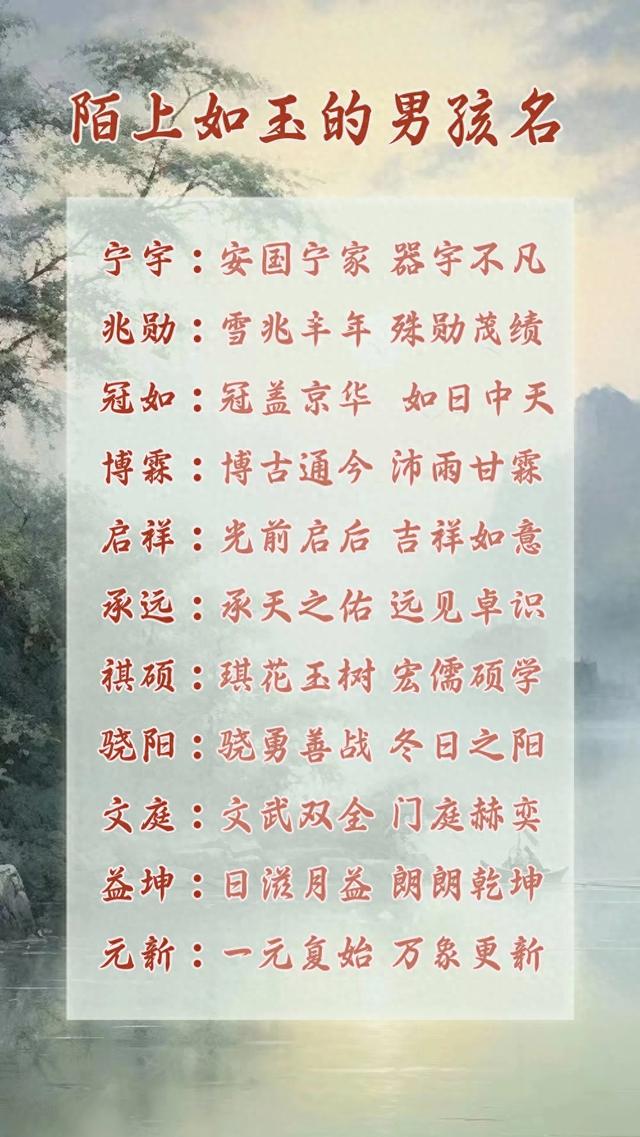 陌上如玉的男孩名
宁宇：安国宁家 器宇不凡
兆勋：雪兆丰年 殊勋茂绩
冠如：冠盖京华 如日中天
博霖：博古通今 沛雨甘霖
启祥：光前启后 吉祥如意
承远：承天之佑 远见卓识
祺硕：琪花玉树 宏儒硕学
骁阳：骁勇善战 冬日之阳
文庭：文武双全 门庭赫奕
益坤：日滋月益 朗朗乾坤
元新：一元复始 万象更新